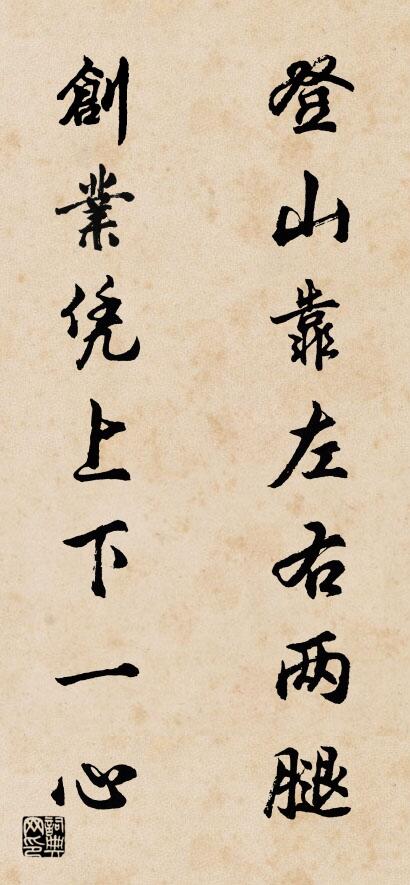 登山靠左右两腿
創業凭上下一心
詞典网印